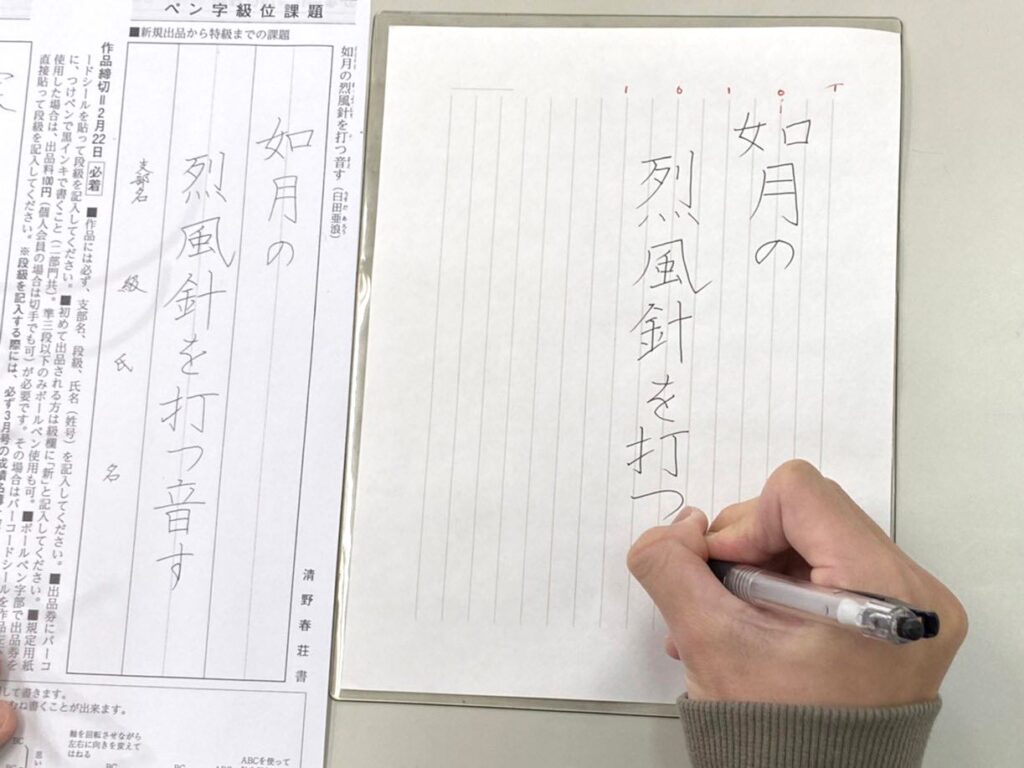 ペン字級位課題
■新規出品から特級までの課題
如月の烈風針を打つ音す（臼田亜浪）
如月の
烈風針を打つ音す
支部名 級 氏名
清野春荘書
作品締切＝2月22日 必着 ■作品には必ず、支部名、段級、氏名（姓号）を記入してください。■出品券にバーコ
ードシールを貼って段級を記入してください。■初めて出品される方は級欄に「新」と記入してください。■規定用紙
に、つけペンで黒インキで書くこと（二部門共）。準三段以下のみボールペン使用も可。■ボールペン字部で出品券を
使用した場合は、出品料100円（個人会員の場合は切手でも可）が必要です。その場合はバーコードシールを作品
直接貼って段級を記入してください。※段級を記入する際には、必ず3月号の成績
して書きます。
書くことが出来ます。
軸を回転させながら
左右に向きを変えて
はねる
ABCを使って
BC
BC
BC
ABC
如月の
烈風針を打つ